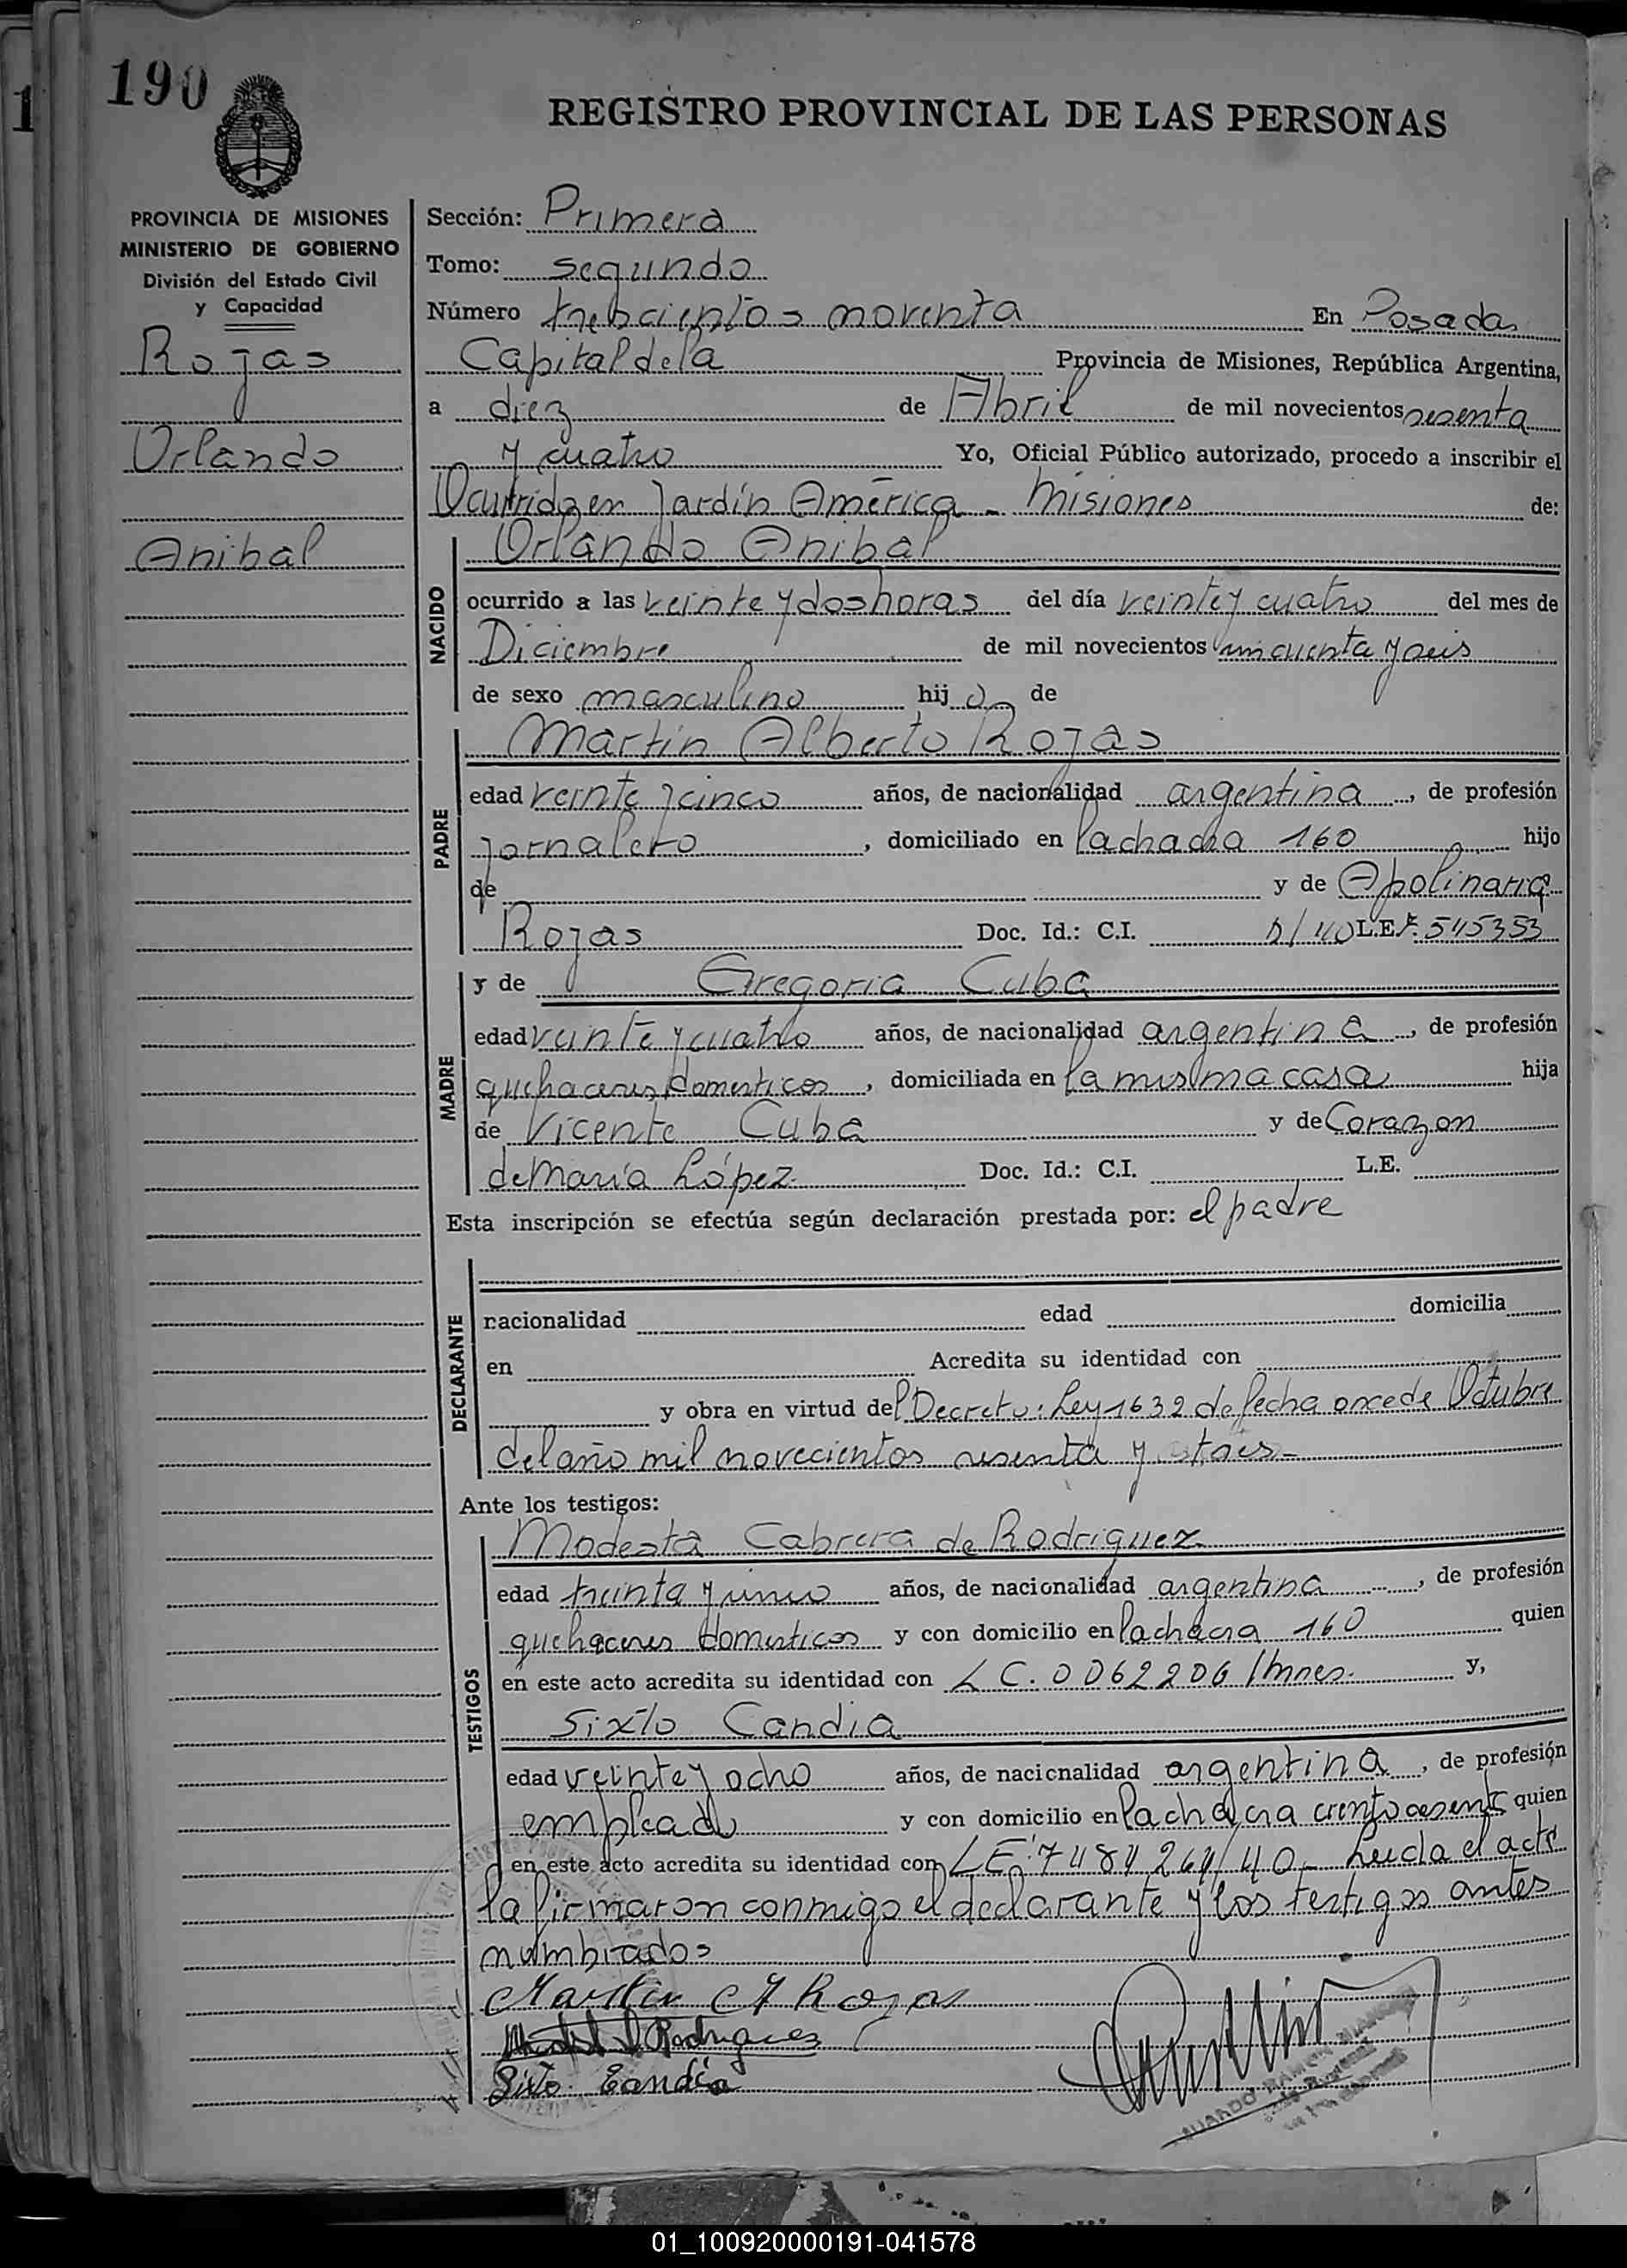 190
REGISTRO PROVINCIAL DE LAS PERSONAS
PROVINCIA DE MISIONES
MINISTERIO DE GOBIERNO
División del Estado Civil
y Capacidad
Rojas
Orlando
Anibal
Sección: Primera
Tomo: segundo
Número trescientos noventa En Posadas
Capital de la Provincia de Misiones, República Argentina,
a diez de Abril de mil novecientos sesenta
y cuatro Yo, Oficial Público autorizado, procedo a inscribir el
Ocurrido en Jardín América - Misiones de:
NACIDO
Orlando Anibal
ocurrido a las veinte y dos horas del día veinte y cuatro del mes de
Diciembre de mil novecientos cincuenta y seis
de sexo masculino hij o de
PADRE
Martín Alberto Rojas
edad veinte y cinco años, de nacionalidad argentina, de profesión
jornalero, domiciliado en la chacra 160 hijo
de y de Apolinaria
Rojas Doc. Id.: C.I. D/40 L.E. 545353
MADRE
y de Gregoria Cuba
edad veinte y cuatro años, de nacionalidad argentina, de profesión
quehaceres domesticos, domiciliada en la misma casa hija
de Vicente Cuba y de Corazon
de María López. Doc. Id.: C.I. L.E.
Esta inscripción se efectúa según declaración prestada por: el padre
DECLARANTE
nacionalidad edad domicilia
en Acredita su identidad con
y obra en virtud del Decreto: Ley 1632 de fecha once de Octubre
del año mil novecientos sesenta y tres-
Ante los testigos:
TESTIGOS
Modesta Cabrera de Rodriguez
edad treinta y cinco años, de nacionalidad argentina, de profesión
quehaceres domesticos y con domicilio en la chacra 160 quien
en este acto acredita su identidad con L C. 0062206 / Mnes. y,
Sixto Candia
edad veinte y ocho años, de nacionalidad argentina, de profesión
empleado y con domicilio en la chacra ciento sesenta quien
en este acto acredita su identidad con LE: 7484264/40- Leida el acta
la firmaron conmigo el declarante y los testigos antes
nombrados
Martin A Rojas
Rodriguez
Sixto Candia
01_100920000191-041578